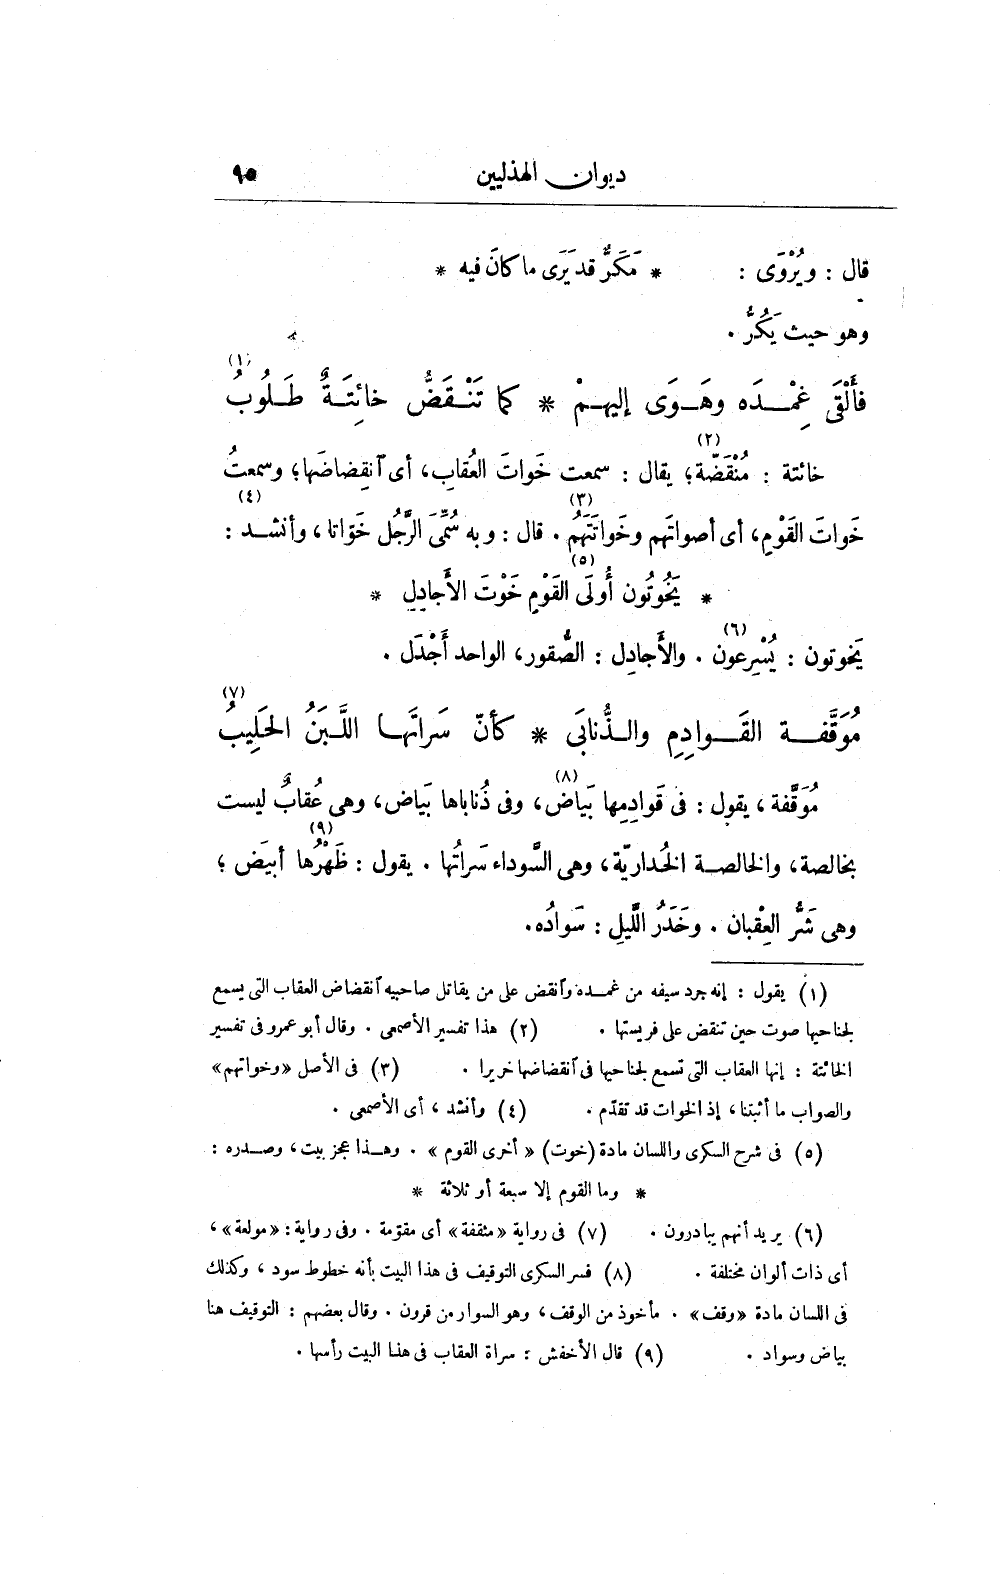 ديوان الهذليين ٩٥
قال : ويُرْوَى : * مَكَرٌّ قد يَرَى ما كانَ فيه *
وهو حيث يَكُرُّ .
فأَلْقَى غِمْدَه وهَوَى إليهمْ * كما تَنْقَضُّ خائتَةٌ طَلُوبُ (١)
خائتة : مُنْقَضّة (٢) ؛ يقال : سمعت خَواتَ العُقابِ، أى آنقِضاضَها؛ وسمعتُ
خَواتَ القَوْمِ، أى أصواتَهم وخَواتَتَهُم (٣) . قال : وبه سُمِّىَ الرَّجُل خَوّاتا (٤) ، وأنشد :
* يَخُوتُون أُولَى (٥) القَوْمِ خَوْتَ الأَجادِلِ *
يَخوتون : يُسْرِعون (٦) . والأَجادِل : الصُّقور، الواحد أَجْدَل .
مُوَقَّفة القَوادِمِ والذُّنابَى * كأنّ سَراتَها اللَّبَنُ الحَلِيبُ (٧)
مُوَقَّفة ، يقول : فى قَوادِمِها بَياض (٨) ، وفى ذُناباها بَياض، وهى عُقابٌ ليست
بخالصة، والخالصة الخُداريّة، وهى السَّوداء سَراتُها . يقول : ظَهْرُها (٩) أبيَض ؛
وهى شَرُّ العِقْبان . وخَدَرُ اللَّيلِ : سَوادُه.
(١) يقول : إنه جرد سيفه من غمده وآنقض على من يقاتل صاحبيه آنقضاض العقاب التى يسمع
لجناحيها صوت حين تنقض على فريستها . (٢) هذا تفسير الأصمعى . وقال أبو عمرو فى تفسير
الخائتة : إنها العقاب التى تسمع لجناحيها فى آنقضاضها خريرا . (٣) فى الأصل «وخواتهم»
والصواب ما أثبتنا، إذ الخوات قد تقدّم . (٤) وأنشد ، أى الأصمعى .
(٥) فى شرح السكرى واللسان مادة (خوت) « أخرى القوم » . وهذا عجز بيت ، وصدره :
* وما القوم إلا سبعة أو ثلاثة *
(٦) يريد أنهم يبادرون . (٧) فى رواية «مثقفة» أى مقوّمة . وفى رواية : «مولعة» ،
أى ذات ألوان مختلفة . (٨) فسر السكرى التوقيف فى هذا البيت بأنه خطوط سود ، وكذلك
فى اللسان مادة «وقف» . مأخوذ من الوقف، وهو السوار من قرون . وقال بعضهم : التوقيف هنا
بياض وسواد . (٩) قال الأخفش : سراة العقاب فى هذا البيت رأسها .